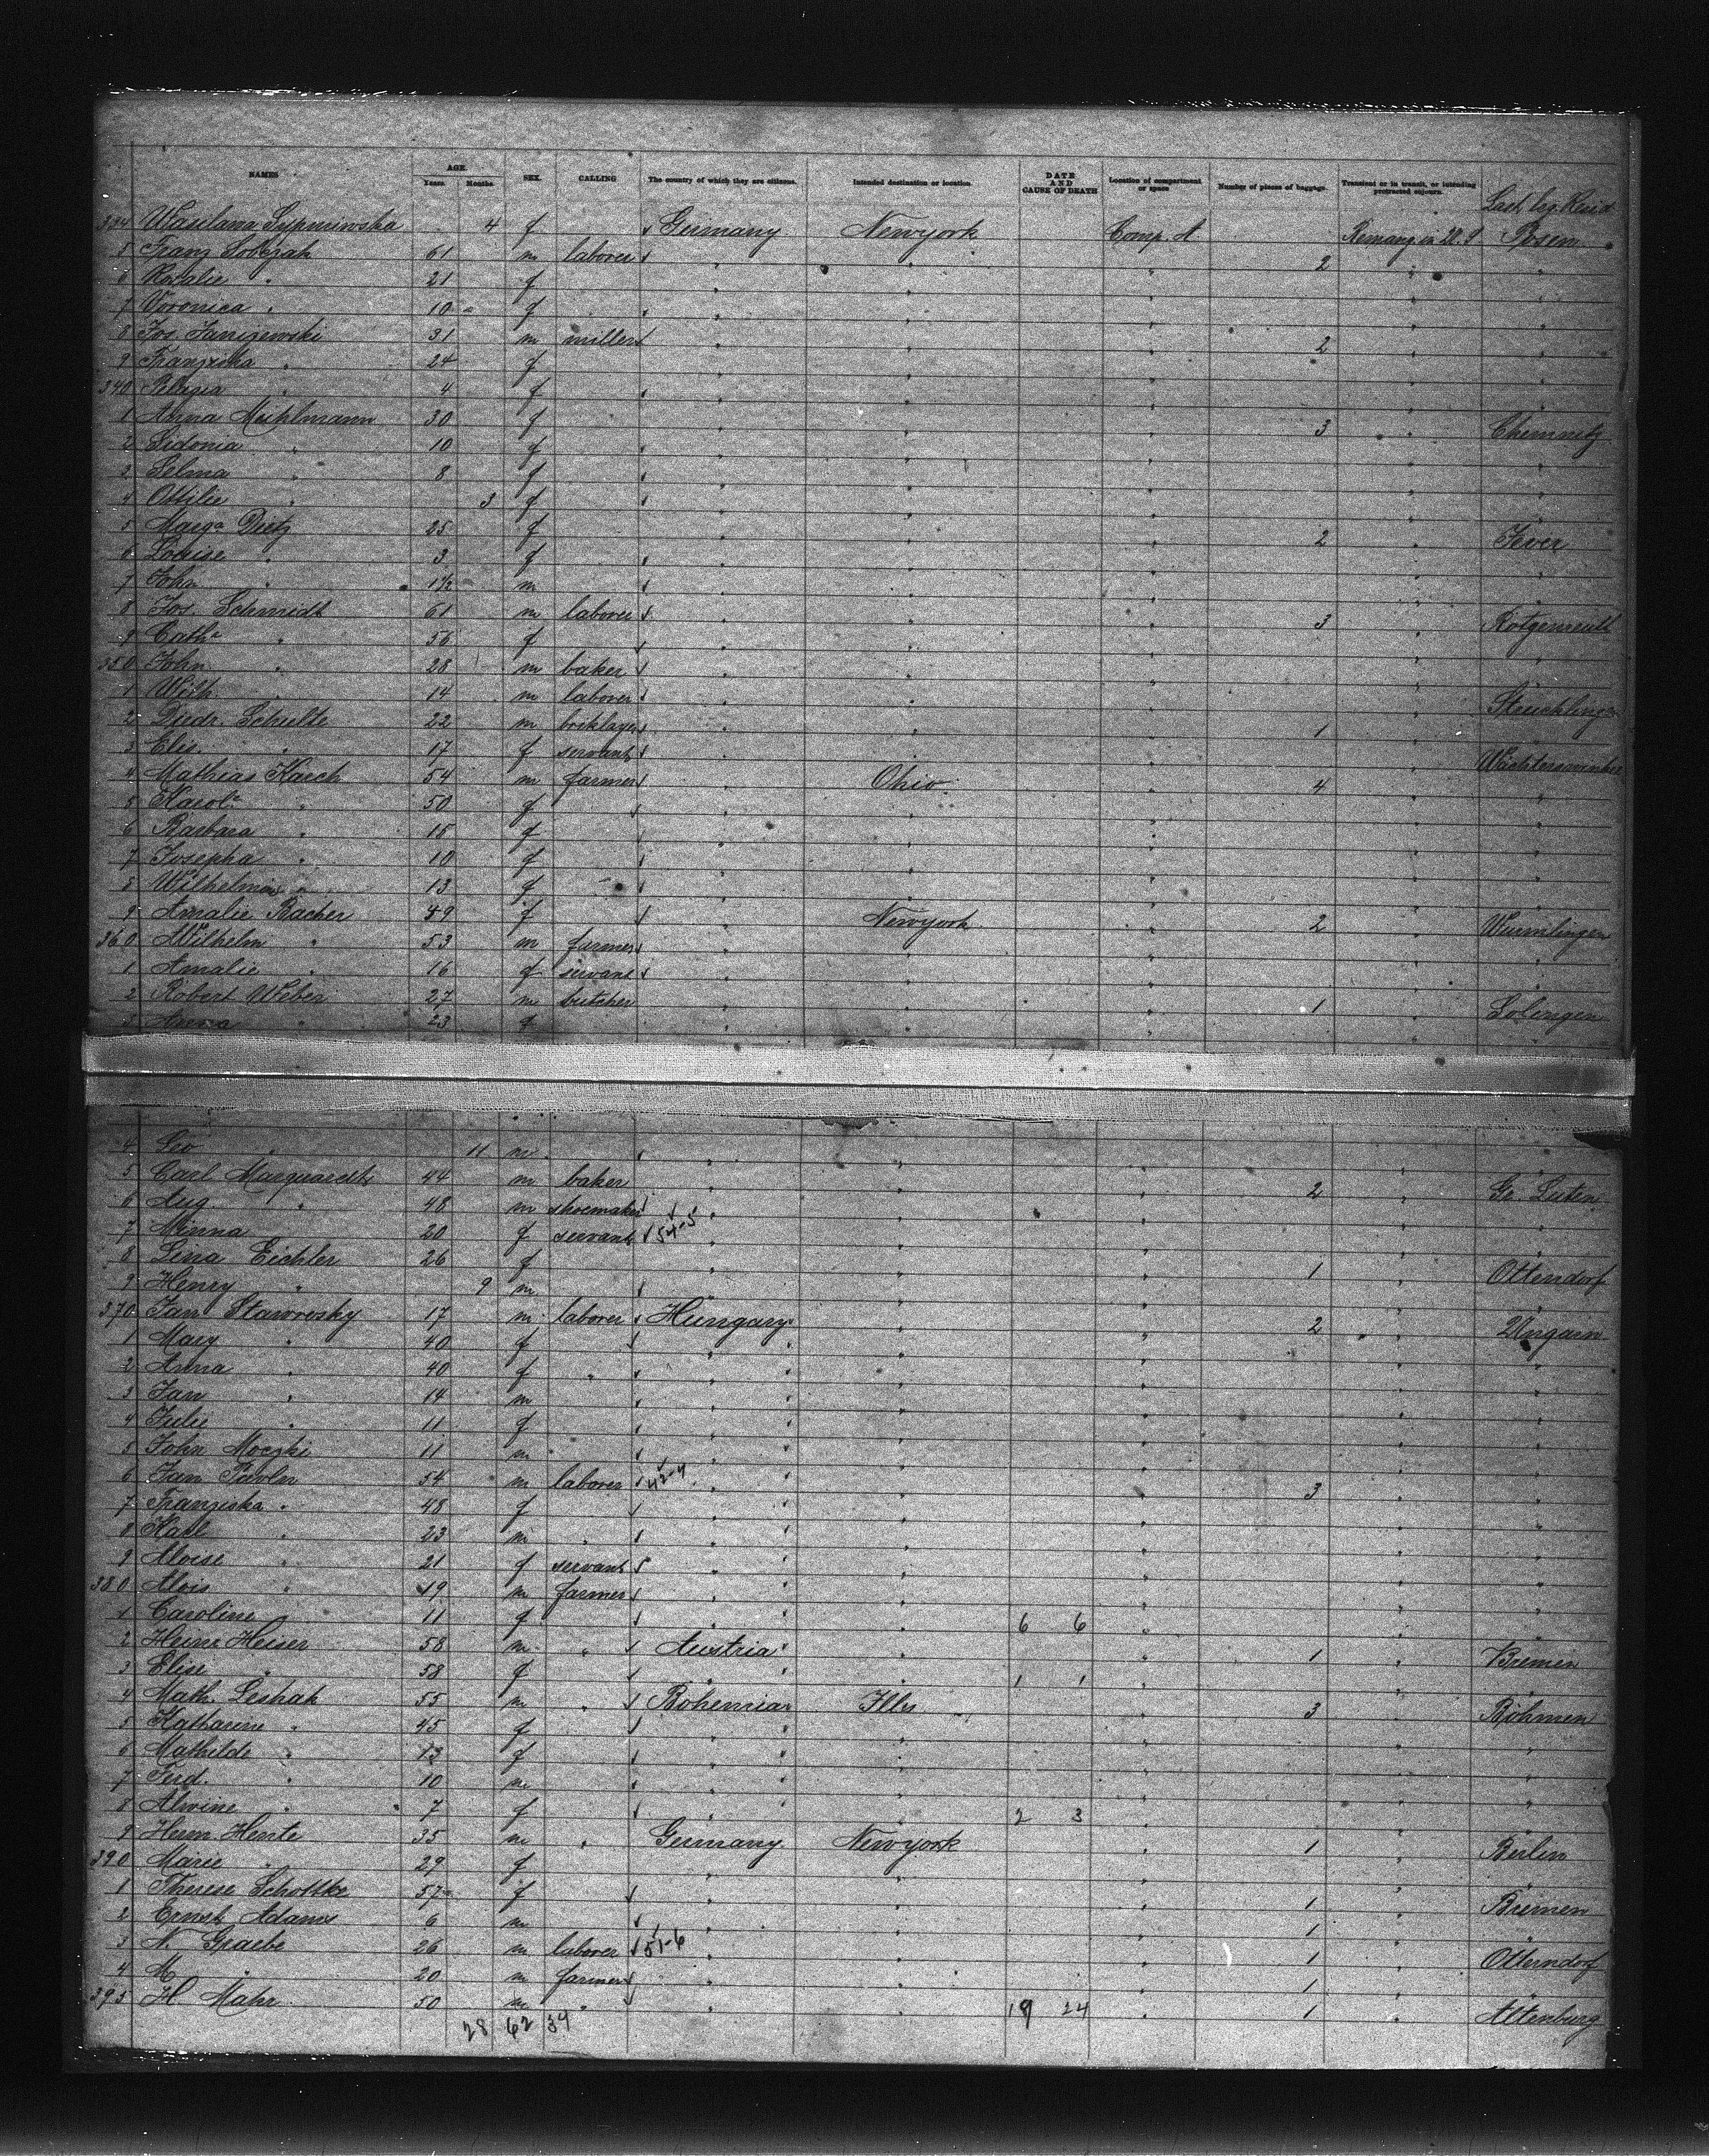 NAMES AGE. Years. Months. SEX. CALLING The country of which they are citizens. Intended destination or location. DATE AND CAUSE OF DEATH Location of compartment or space Number of pieces of baggage. Transient or in transit, or intending protracted sojourn. Last leg. Resid.
334 4 f Germany Newyork Comp. A Posen
5 Franz 61 m laborer " " " 2 " "
6 Rosalie " 21 f " " " " "
7 Veronica " 10 f " " " " "
8 Jos. Janizewski 31 m miller " " " 2 " "
9 Franziska " 24 f " " " " "
340 Pelagia " 4 f " " " " "
1 Anna Muhlmann 30 f " " " 3 " Chemnitz
2 Sidonia " 10 f " " " " "
3 Selma " 8 f " " " " "
4 Ottilie " 3 f " " " " "
5 Marga Dietz 25 f " " " 2 " Jever
6 Louise " 3 f " " " " "
7 Joh. " 1½ m " " " " "
8 Jos. Schmidt 61 m laborer " " " 3 "
9 Cath. " 56 f " " " " "
350 John " 28 m baker " " " " "
1 Wilh. " 14 m laborer " " " "
2 Diedr. Schulte 22 m bricklayer " " " 1 "
3 Elis. " 17 f servant " " " "
4 Mathias Karch 54 m farmer " Ohio " 4 " "
5 Karol. " 50 f " " " " "
6 Barbara " 15 f " " " " "
7 Josepha " 10 f " " " " "
8 Wilhelmine " 13 f " " " " "
9 Amalie Bacher 49 f " Newyork " 2 " Wurmlingen
360 Wilhelm " 53 m farmer " " " " "
1 Amalie " 16 f servant " " " " "
2 Robert Weber 27 m butcher " " " 1 " Solingen
3 Anna " 23 f " " " " "
4 Leo " 11 m " " " " "
5 Carl Marquardt 44 m baker " " " 2 " Gr. Luten
6 Aug. " 48 m shoemaker " " " " "
7 Minna " 20 f servant 54-5 " " " " "
8 Lina Eichler 26 f " " " 1 " Ottendorf
9 Henry " 9 m " " " " "
370 Jan Stawrosky 17 m laborer Hungary " " 2 " Ungarn
1 Mary " 40 f " " " " "
2 Anna " 40 f " " " " " "
3 Jan " 14 m " " " " "
4 Julie " 11 f " " " " "
5 John Moczki 11 m " " " " "
6 Jan Pavln 54 m laborer 42-4 " " " 3 " "
7 Franziska " 48 f " " " " "
8 Karl " 23 m " " " " " "
9 Aloise " 21 f servant " " " " "
380 Alois " 19 m farmer " " " " "
1 Caroline " 11 f " " 6 6 " " "
2 Heinr Heiser 58 m " Austria " " 1 " Bremen
3 Elise " 58 f " " 1 1 " " "
4 Math. Leshak 55 m " Bohemian Ills " 3 " Böhmen
5 Katharine " 45 f " " " " "
6 Mathilde " 13 f " " " " "
7 Ferd. " 10 m " " " " "
8 Alwine " 7 f " " 2 3 " " "
9 Herm Hente 35 m " Germany Newyork " 1 " Berlin
390 Marie " 29 f " " " " "
1 Therese Schottke 57 f " " " 1 " Bremen
2 Ernst Adams 6 m " " " 1 " "
3 N. Graebe 26 m laborer 51-6 " " " 1 " Otterndorf
4 M " 20 m farmer " " " 1 " "
395 H Mahr 50 m " " " 19 24 " 1 " Altenburg
28 62 34